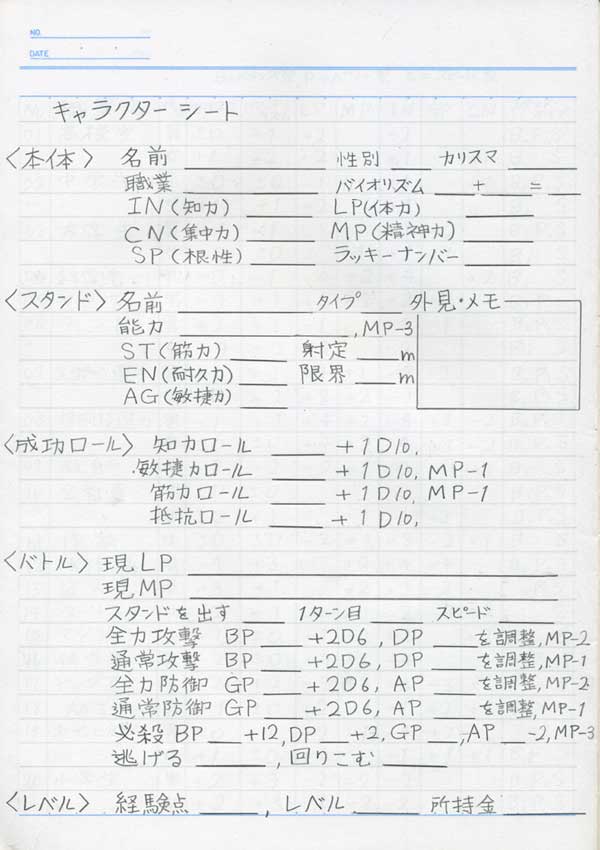 NO.
DATE
キャラクターシート
〈本体〉 名前＿＿＿ 性別＿＿＿ カリスマ＿＿＿
職業＿＿＿ バイオリズム＿＿＿+＿＿＿=＿＿＿
IN(知力)＿＿＿ LP(体力)＿＿＿
CN(集中力)＿＿＿ MP(精神力)＿＿＿
SP(根性)＿＿＿ ラッキーナンバー＿＿＿
〈スタンド〉 名前＿＿＿ タイプ＿＿＿ 外見・メモ
能力＿＿＿,MP-3
ST(筋力)＿＿＿ 射定＿＿＿m
EN(耐久力)＿＿＿ 限界＿＿＿m
AG(敏捷力)＿＿＿
〈成功ロール〉 知力ロール＿＿＿+1D10,
敏捷力ロール＿＿＿+1D10, MP-1
筋力ロール＿＿＿+1D10, MP-1
抵抗ロール＿＿＿+1D10,
〈バトル〉 現LP＿＿＿
現MP＿＿＿
スタンドを出す＿＿＿ 1ターン目＿＿＿ スピード＿＿＿
全力攻撃 BP＿＿＿+2D6, DP＿＿＿を調整,MP-2
通常攻撃 BP＿＿＿+2D6, DP＿＿＿を調整,MP-1
全力防御 GP＿＿＿+2D6, AP＿＿＿を調整,MP-2
通常防御 GP＿＿＿+2D6, AP＿＿＿を調整,MP-1
必殺 BP＿＿＿+12,DP＿＿＿+2,GP＿＿＿,AP＿＿＿-2,MP-3
逃げる＿＿＿,回りこむ＿＿＿
〈レベル〉 経験点＿＿＿, レベル＿＿＿ 所持金＿＿＿